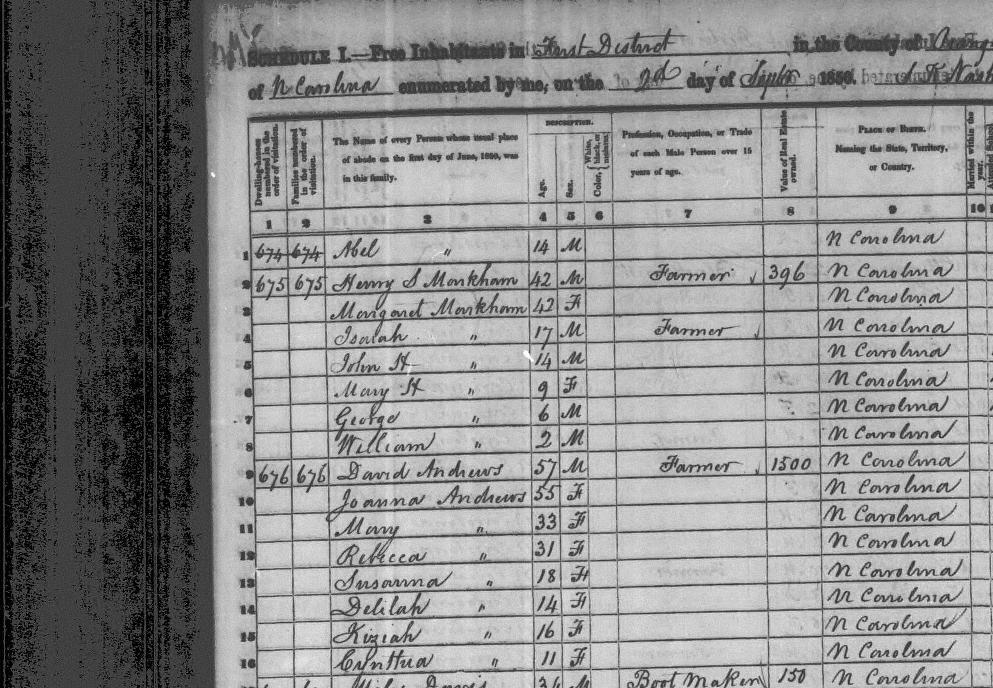 SCHEDULE I.—Free Inhabitants in First District in the County of Orang
of N Carolina enumerated by me, on the 2d day of Septbr 1850.
Dwelling-houses numbered in the order of visitation.
Families numbered in the order of visitation.
The Name of every Person whose usual place of abode on the first day of June, 1850, was in this family.
DESCRIPTION.
Age.
Sex.
Color, { White, black, or mulatto.
Profession, Occupation, or Trade of each Male Person over 15 years of age.
Value of Real Estate owned.
PLACE OF BIRTH. Naming the State, Territory, or Country.
Married within the year.
1 2 3 4 5 6 7 8 9 10
1 674 674 Abel " 14 M N Carolina
2 675 675 Henry S Markham 42 M Farmer 396 N Carolina
3 Margaret Markham 42 F N Carolina
4 Isaiah " 17 M Farmer N Carolina
5 John H " 14 M N Carolina
6 Mary H " 9 F N Carolina
7 George " 6 M N Carolina
8 William " 2 M N Carolina
9 676 676 David Andrews 57 M Farmer 1500 N Carolina
10 Joanna Andrews 55 F N Carolina
11 Mary " 33 F N Carolina
12 Rebecca " 31 F N Carolina
13 Susanna " 18 F N Carolina
14 Delilah " 14 F N Carolina
15 Kiziah " 16 F N Carolina
16 Cynthua " 11 F N Carolina
Davis 34 M Boot Maker 150 N Carolina